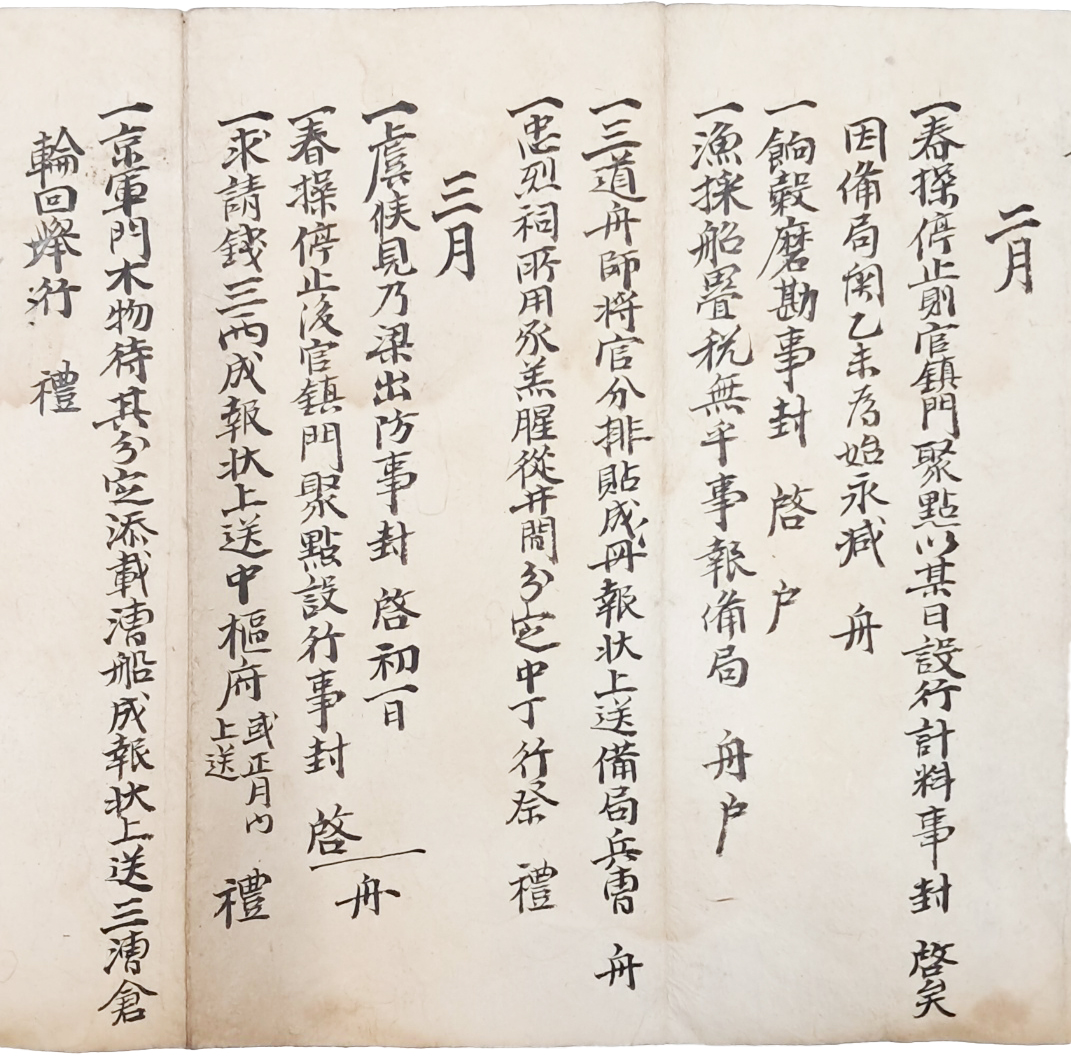 二月
一春操停止則官鎮門聚點以某日設行計料事封 啓矣
因備局関乙未為始永减 舟
一餉穀磨勘事封 啓 戶
一漁採船疊稅無乎事報備局 舟戶
一三道舟師將官分排貼成冊報狀上送備局兵曹 舟
一忠烈祠所用豕羔腥從井間分定中丁行祭 禮
三月
一虞候見乃梁出防事封 啓初一日
一春操停止後官鎮門聚點設行事封 啓 舟
一求請錢三兩成報狀上送中樞府或正月內上送 禮
一京軍門木物待其分定添載漕船成報狀上送三漕倉
輪回擧行 禮